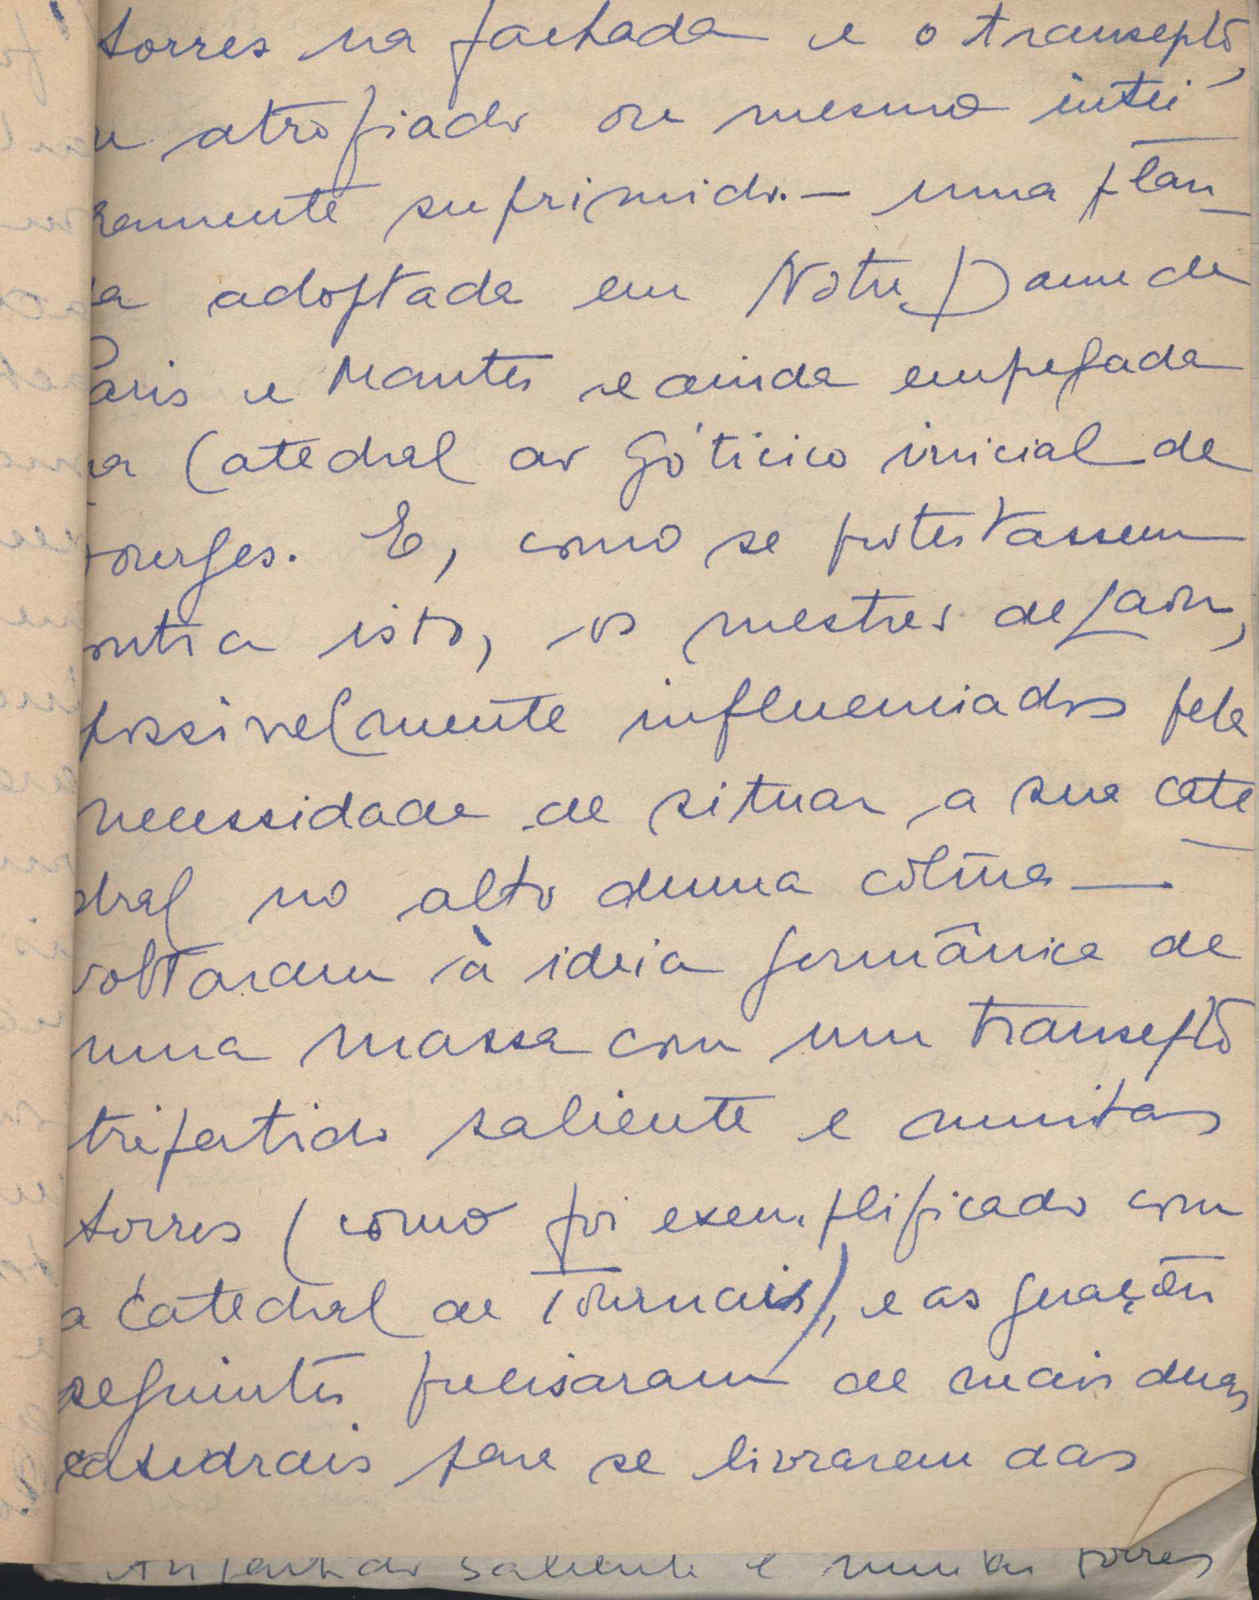 torres na fachada e o transepto,
ou atrofiado ou mesmo intei-
ramente suprimido. — uma plan-
ta adoptada em Notre Dame de
Paris e Mantes e ainda empregada
na Catedral do Góticico inicial de
Bourges. E, como se protestassem
contra isto, os mestres de Laon,
possivelmente influenciados pela
necessidade de situar a sua cate-
dral no alto duma colina —
voltaram à ideia germânica de
uma massa com um transepto
tripartido saliente e muitas
torres (como foi exemplificado com
a Catedral de Tournais), e as gerações
seguintes precisaram de mais duas
catedrais para se livrarem das
tripartido saliente e muitas torres